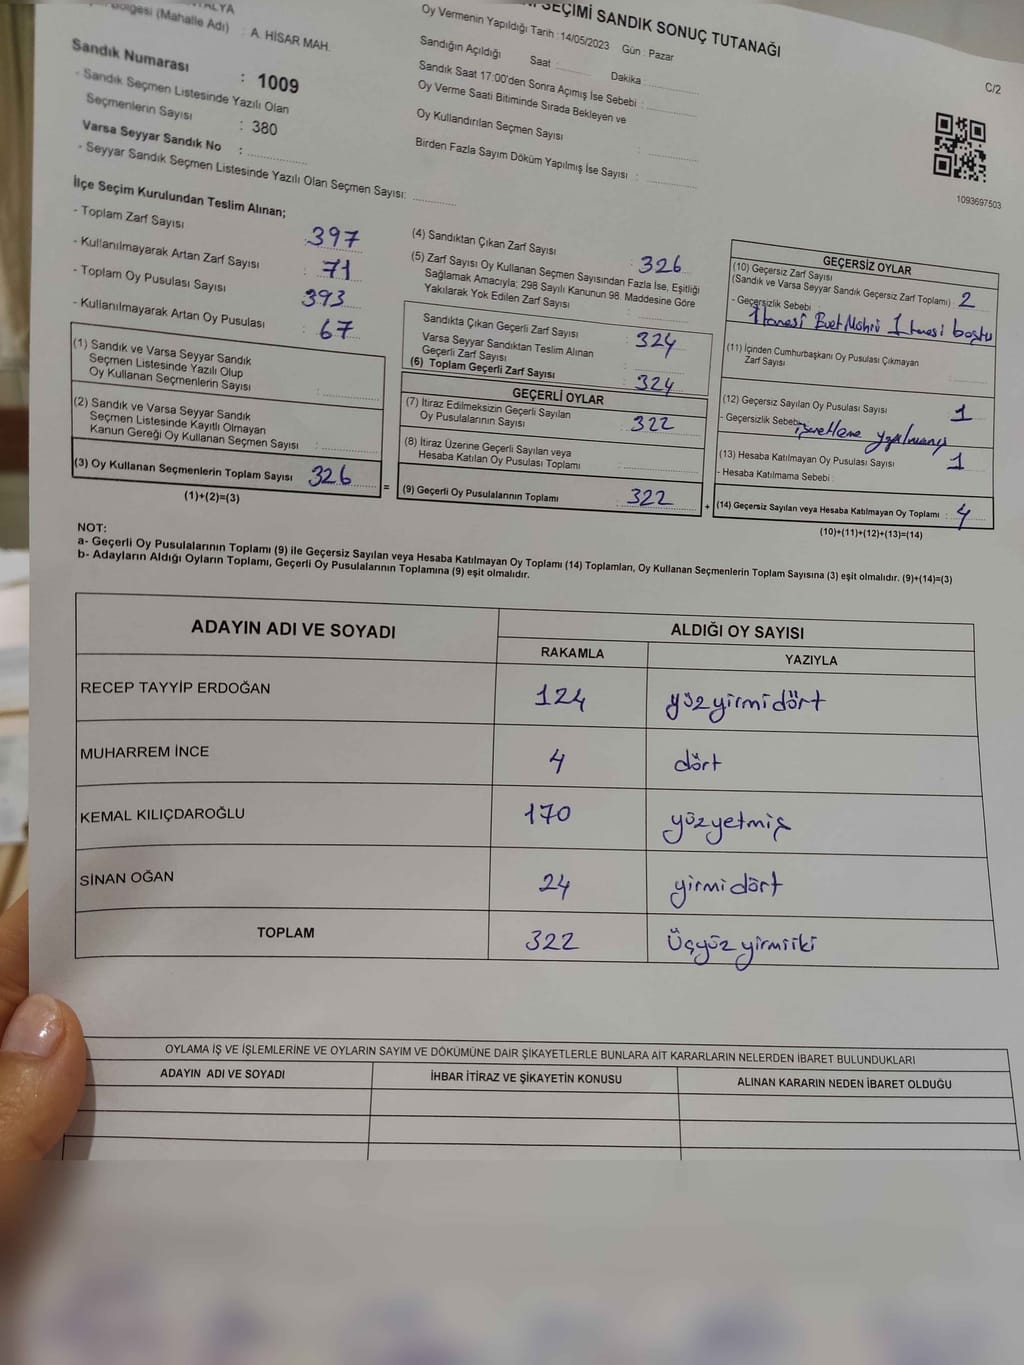 SEÇİMİ SANDIK SONUÇ TUTANAĞI
C/2
Bölgesi (Mahalle Adı) : A. HİSAR MAH.
Sandık Numarası : 1009
- Sandık Seçmen Listesinde Yazılı Olan
Seçmenlerin Sayısı : 380
Varsa Seyyar Sandık No :
- Seyyar Sandık Seçmen Listesinde Yazılı Olan Seçmen Sayısı:
Oy Vermenin Yapıldığı Tarih : 14/05/2023 Gün : Pazar
Sandığın Açıldığı Saat : Dakika :
Sandık Saat 17:00'den Sonra Açımış İse Sebebi :
Oy Verme Saati Bitiminde Sırada Bekleyen ve
Oy Kullandırılan Seçmen Sayısı :
Birden Fazla Sayım Döküm Yapılmış İse Sayısı :
1093697503
İlçe Seçim Kurulundan Teslim Alınan;
- Toplam Zarf Sayısı : 397
- Kullanılmayarak Artan Zarf Sayısı : 71
- Toplam Oy Pusulası Sayısı : 393
- Kullanılmayarak Artan Oy Pusulası : 67
(1) Sandık ve Varsa Seyyar Sandık
Seçmen Listesinde Yazılı Olup
Oy Kullanan Seçmenlerin Sayısı :
(2) Sandık ve Varsa Seyyar Sandık
Seçmen Listesinde Kayıtlı Olmayan
Kanun Gereği Oy Kullanan Seçmen Sayısı :
(3) Oy Kullanan Seçmenlerin Toplam Sayısı 326
(1)+(2)=(3)
=
(4) Sandıktan Çıkan Zarf Sayısı : 326
(5) Zarf Sayısı Oy Kullanan Seçmen Sayısından Fazla İse, Eşitliği
Sağlamak Amacıyla; 298 Sayılı Kanunun 98. Maddesine Göre
Yakılarak Yok Edilen Zarf Sayısı :
Sandıkta Çıkan Geçerli Zarf Sayısı : 324
Varsa Seyyar Sandıktan Teslim Alınan
Geçerli Zarf Sayısı :
(6) Toplam Geçerli Zarf Sayısı : 324
GEÇERLİ OYLAR
(7) İtiraz Edilmeksizin Geçerli Sayılan
Oy Pusulalarının Sayısı : 322
(8) İtiraz Üzerine Geçerli Sayılan veya
Hesaba Katılan Oy Pusulası Toplamı :
(9) Geçerli Oy Pusulalarının Toplamı : 322
+
GEÇERSİZ OYLAR
(10) Geçersiz Zarf Sayısı
(Sandık ve Varsa Seyyar Sandık Geçersiz Zarf Toplamı) : 2
- Geçersizlik Sebebi :
1 tanesi Evet Mührü 1 tanesi boştu
(11) İçinden Cumhurbaşkanı Oy Pusulası Çıkmayan
Zarf Sayısı :
(12) Geçersiz Sayılan Oy Pusulası Sayısı 1
- Geçersizlik Sebebi: işaretleme yapılmamış
(13) Hesaba Katılmayan Oy Pusulası Sayısı 1
- Hesaba Katılmama Sebebi :
(14) Geçersiz Sayılan veya Hesaba Katılmayan Oy Toplamı : 4
(10)+(11)+(12)+(13)=(14)
NOT:
a- Geçerli Oy Pusulalarının Toplamı (9) ile Geçersiz Sayılan veya Hesaba Katılmayan Oy Toplamı (14) Toplamları, Oy Kullanan Seçmenlerin Toplam Sayısına (3) eşit olmalıdır. (9)+(14)=(3)
b- Adayların Aldığı Oyların Toplamı, Geçerli Oy Pusulalarının Toplamına (9) eşit olmalıdır.
ADAYIN ADI VE SOYADI ALDIĞI OY SAYISI
RAKAMLA YAZIYLA
RECEP TAYYİP ERDOĞAN 124 yüzyirmidört
MUHARREM İNCE 4 dört
KEMAL KILIÇDAROĞLU 170 yüzyetmiş
SİNAN OĞAN 24 yirmidört
TOPLAM 322 Üçyüzyirmiiki
OYLAMA İŞ VE İŞLEMLERİNE VE OYLARIN SAYIM VE DÖKÜMÜNE DAİR ŞİKAYETLERLE BUNLARA AİT KARARLARIN NELERDEN İBARET BULUNDUKLARI
ADAYIN ADI VE SOYADI İHBAR İTİRAZ VE ŞİKAYETİN KONUSU ALINAN KARARIN NEDEN İBARET OLDUĞU